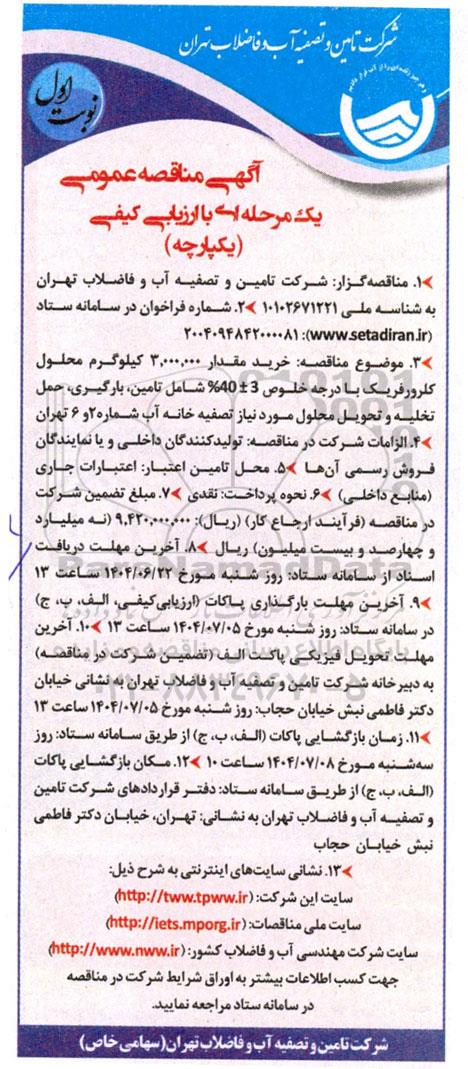 شرکت تامین و تصفیه آب و فاضلاب تهران
نوبت اول
آگهی مناقصه عمومی
یک مرحله ای با ارزیابی کیفی
(یکپارچه)
۱. مناقصه‌گزار: شرکت تامین و تصفیه آب و فاضلاب تهران
به شناسه ملی ۱۰۱۰۲۶۷۱۲۲۱ ۲. شماره فراخوان در سامانه ستاد
(www.setadiran.ir): ۲۰۰۴۰۹۴۸۴۲۰۰۰۰۸۱
۳. موضوع مناقصه: خرید مقدار ۳,۰۰۰,۰۰۰ کیلوگرم محلول
کلرورفریک با درجه خلوص 3 ± 40% شامل تامین، بارگیری، حمل
تخلیه و تحویل محلول مورد نیاز تصفیه خانه آب شماره۲و ۶ تهران
۴. الزامات شرکت در مناقصه: تولیدکنندگان داخلی و یا نمایندگان
فروش رسمی آن‌ها ۵. محل تامین اعتبار: اعتبارات جاری
(منابع داخلی) ۶. نحوه پرداخت: نقدی ۷. مبلغ تضمین شرکت
در مناقصه (فرآیند ارجاع کار) (ریال): ۹,۴۲۰,۰۰۰,۰۰۰ (نه میلیارد
و چهارصد و بیست میلیون) ریال ۸. آخرین مهلت دریافت
اسناد از سامانه ستاد: روز شنبه مورخ ۱۴۰۴/۰۶/۲۲ ساعت ۱۳
۹. آخرین مهلت بارگذاری پاکات (ارزیابی‌کیفی، الف، ب، ج)
در سامانه ستاد: روز شنبه مورخ ۱۴۰۴/۰۷/۰۵ ساعت ۱۳ ۱۰. آخرین
مهلت تحویل فیزیکی پاکت الف (تضمین شرکت در مناقصه)
به دبیرخانه شرکت تامین و تصفیه آب و فاضلاب تهران: به نشانی خیابان
دکتر فاطمی نبش خیابان حجاب: روز شنبه مورخ ۱۴۰۴/۰۷/۰۵ ساعت ۱۳
۱۱. زمان بازگشایی پاکات (الف، ب، ج) از طریق سامانه ستاد: روز
سه‌شنبه مورخ ۱۴۰۴/۰۷/۰۸ ساعت ۱۰ ۱۲. مکان بازگشایی پاکات
(الف، ب، ج) از طریق سامانه ستاد: دفتر قراردادهای شرکت تامین
و تصفیه آب و فاضلاب تهران به نشانی: تهران، خیابان دکتر فاطمی
نبش خیابان حجاب
۱۳. نشانی سایت‌های اینترنتی به شرح ذیل:
سایت این شرکت: (http://tww.tpww.ir)
سایت ملی مناقصات: (http://iets.mporg.ir)
سایت شرکت مهندسی آب و فاضلاب کشور: (http://www.nww.ir)
جهت کسب اطلاعات بیشتر به اوراق شرایط شرکت در مناقصه
در سامانه ستاد مراجعه نمایید.
شرکت تامین و تصفیه آب و فاضلاب تهران (سهامی خاص)